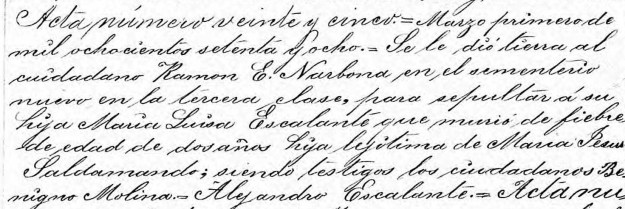 Acta número veinte y cinco.= Marzo primero de
mil ochocientos setenta y ocho.= Se le dió tierra al
cuidadano Ramon E. Narbona en el sementerio
nuevo en la tercera clase, para sepultar á su
hija Maria Luisa Escalante que murió de fiebre
de edad de dos años hija lejítima de Maria Jesus
Saldamando; siendo testigos los ciudadanos Be-
nigno Molina.= Alejandro Escalante.= Acta nu